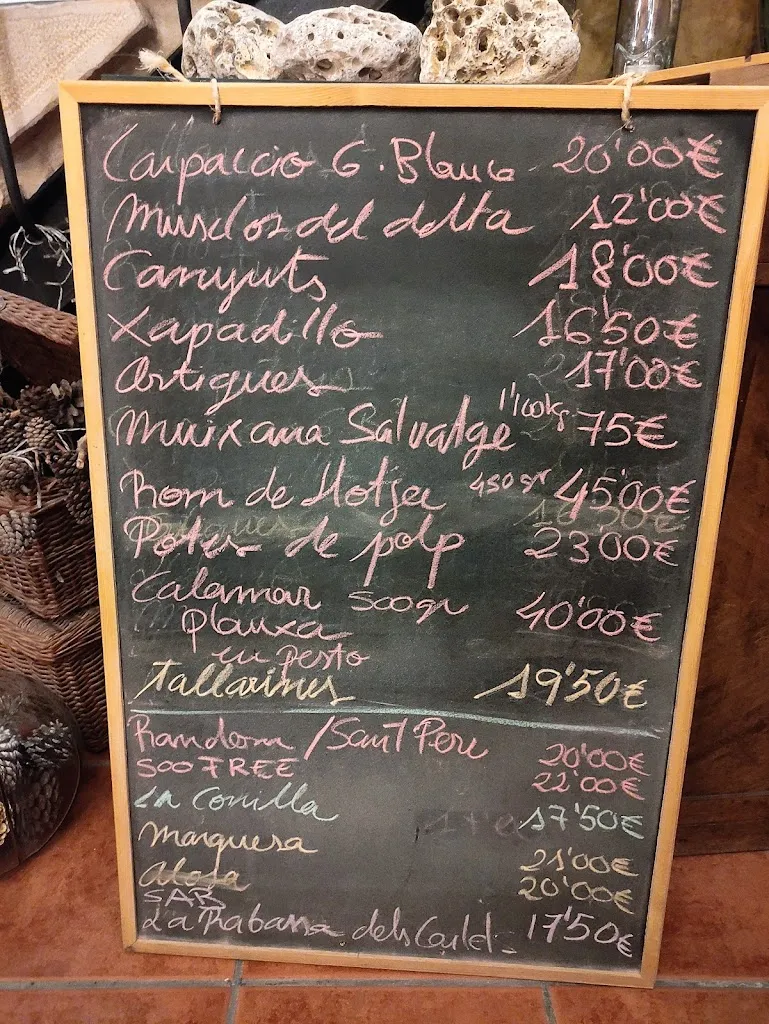 Carpaccio G. Blanca 20'00€
Musclos del delta 12'00€
Canyuts 18'00€
Xapadillo 16'50€
Ortigues 17'00€
Muixarra Salvatge 1'100kg 75€
Rom de Llotja 450gr 45'00€
Potes de polp 23'00€
Calamar 500gr 40'00€
planxa
en pesto
Tallarines 19'50€
Random / Sant Pere 20'00€
SOO FREE 22'00€
La Conilla 17'50€
Marquesa 21'00€
20'00€
SAB
La Rabassa dels 17'50€